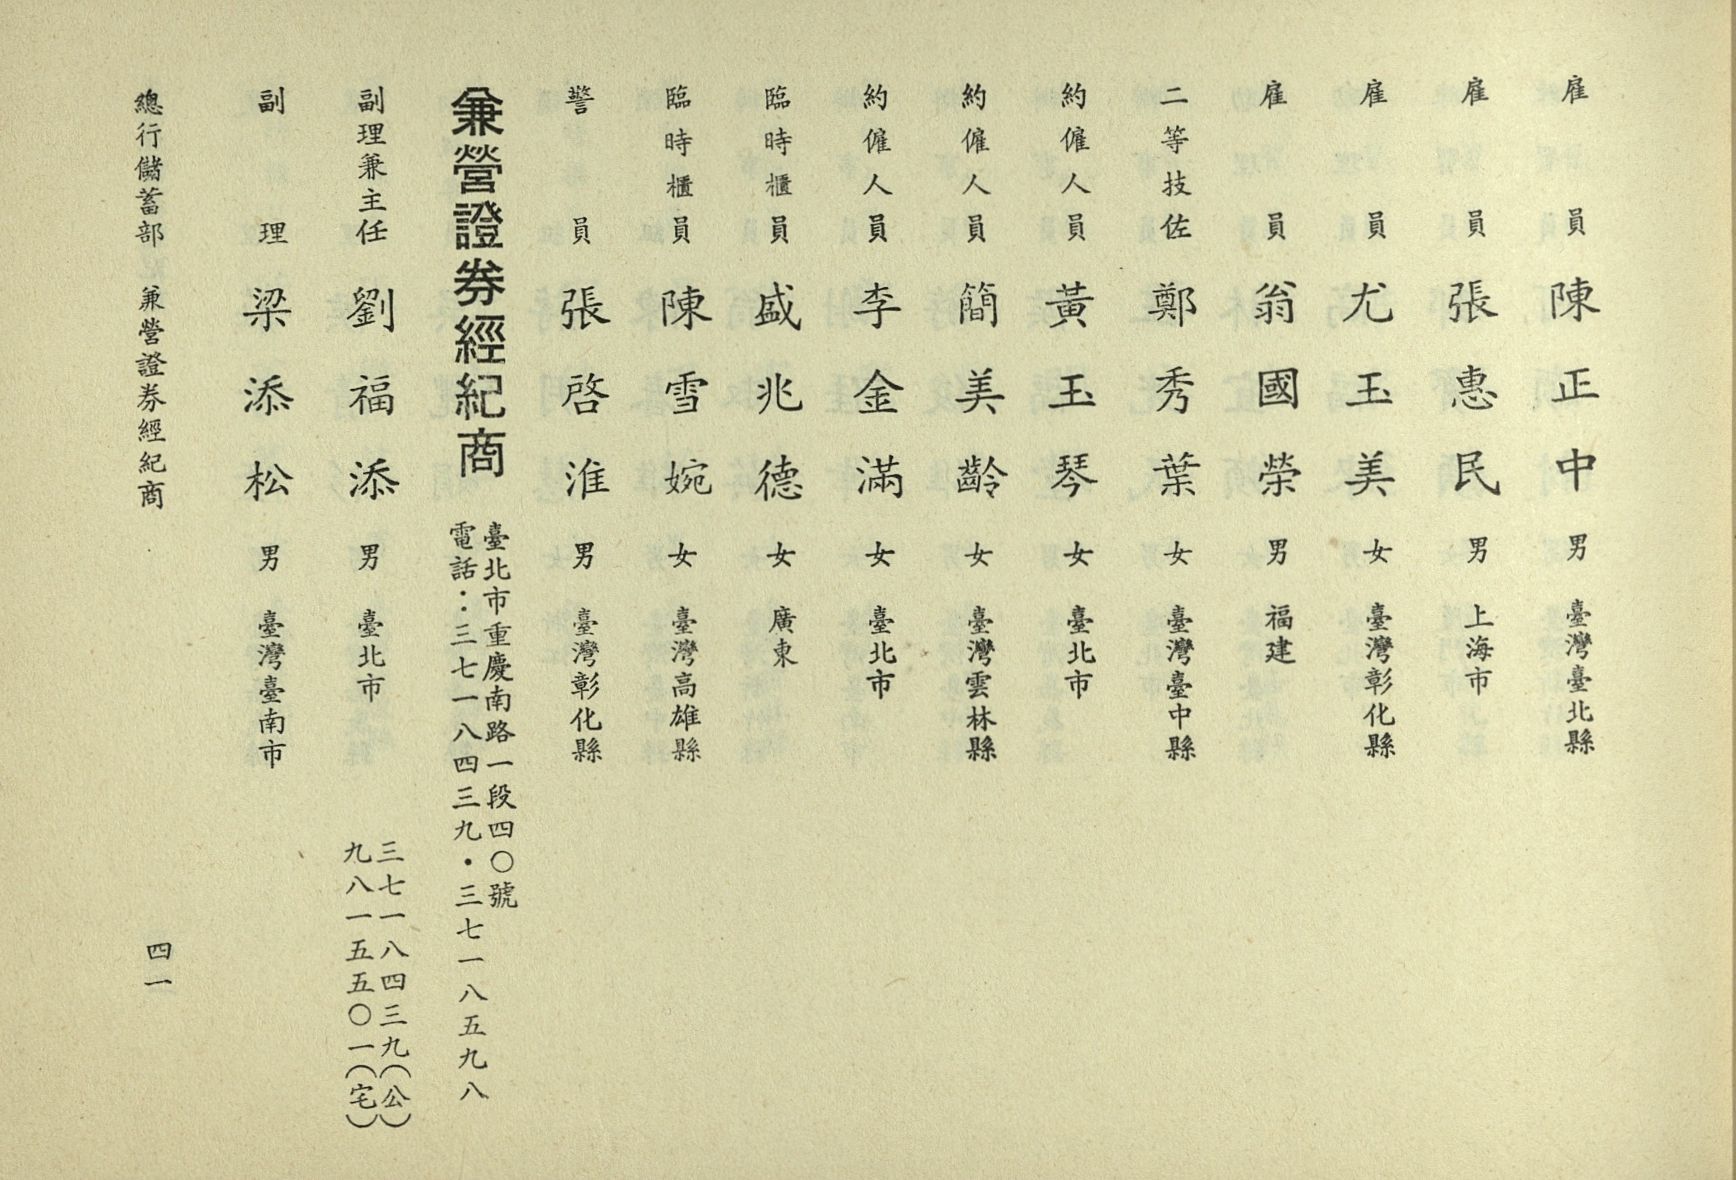 雇員 陳正中 男 臺灣臺北縣
雇員 張惠民 男 上海市
雇員 尤玉美 女 臺灣彰化縣
雇員 翁國榮 男 福建
二等技佐 鄭秀葉 女 臺灣臺中縣
約僱人員 黃玉琴 女 臺北市
約僱人員 簡美齡 女 臺灣雲林縣
約僱人員 李金滿 女 臺北市
臨時櫃員 盛兆德 女 廣東
臨時櫃員 陳雪婉 女 臺灣高雄縣
警員 張啓淮 男 臺灣彰化縣
兼營證券經紀商
臺北市重慶南路一段四〇號
電話：三七一八四三九・三七一八五九八
副理兼主任 劉福添 男 臺北市
三七一八四三九（公）
九八一五五〇一（宅）
副理 梁添松 男 臺灣臺南市
總行儲蓄部 兼營證券經紀商
四一